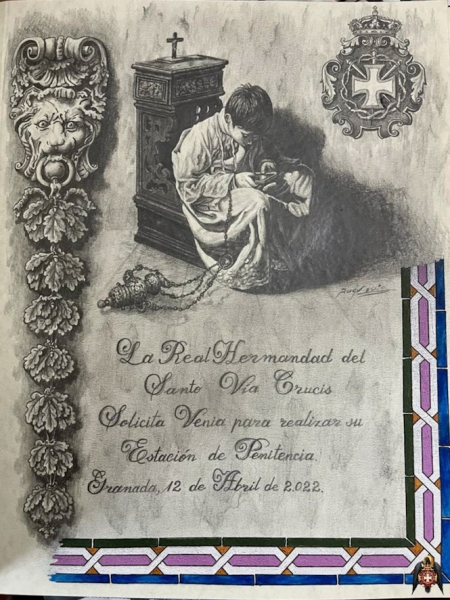 La Real Hermandad del
Santo Vía Crucis
Solicita Venia para realizar su
Estación de Penitencia.
Granada, 12 de Abril de 2.022.